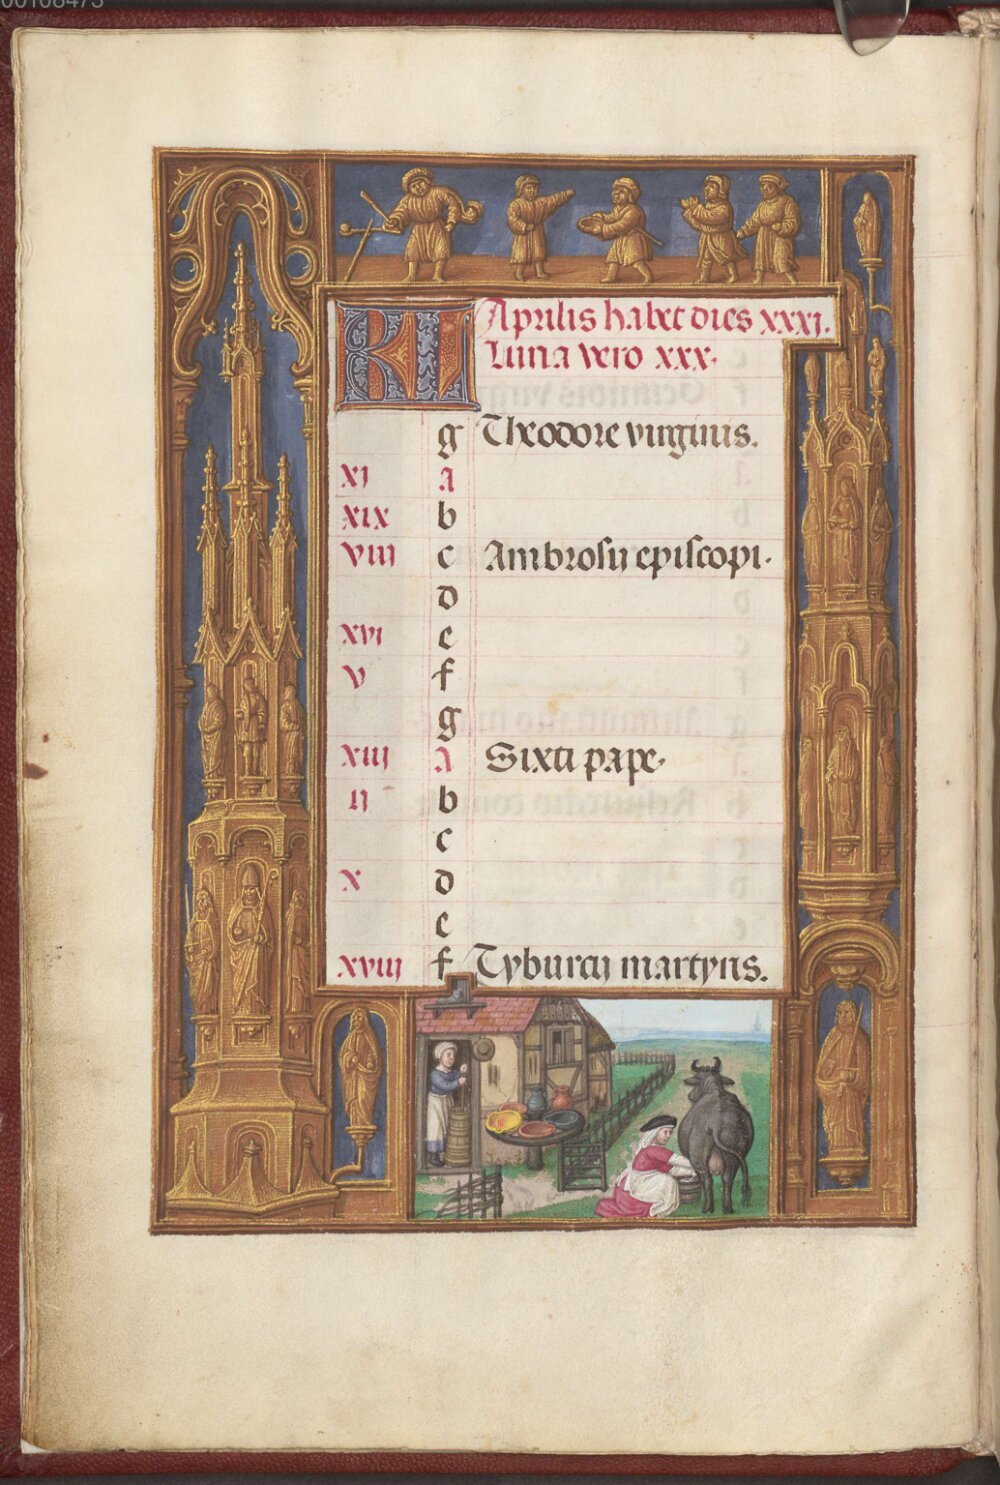 00108473
KL Aprilis habet dies xxxj.
Luna vero xxx.
g Theodore virginis.
xj A
xix b
viij c Ambrosij episcopi.
d
xvj e
v f
g
xiij A Sixti pape.
ij b
c
x d
e
xviij f Tyburcij martyris.